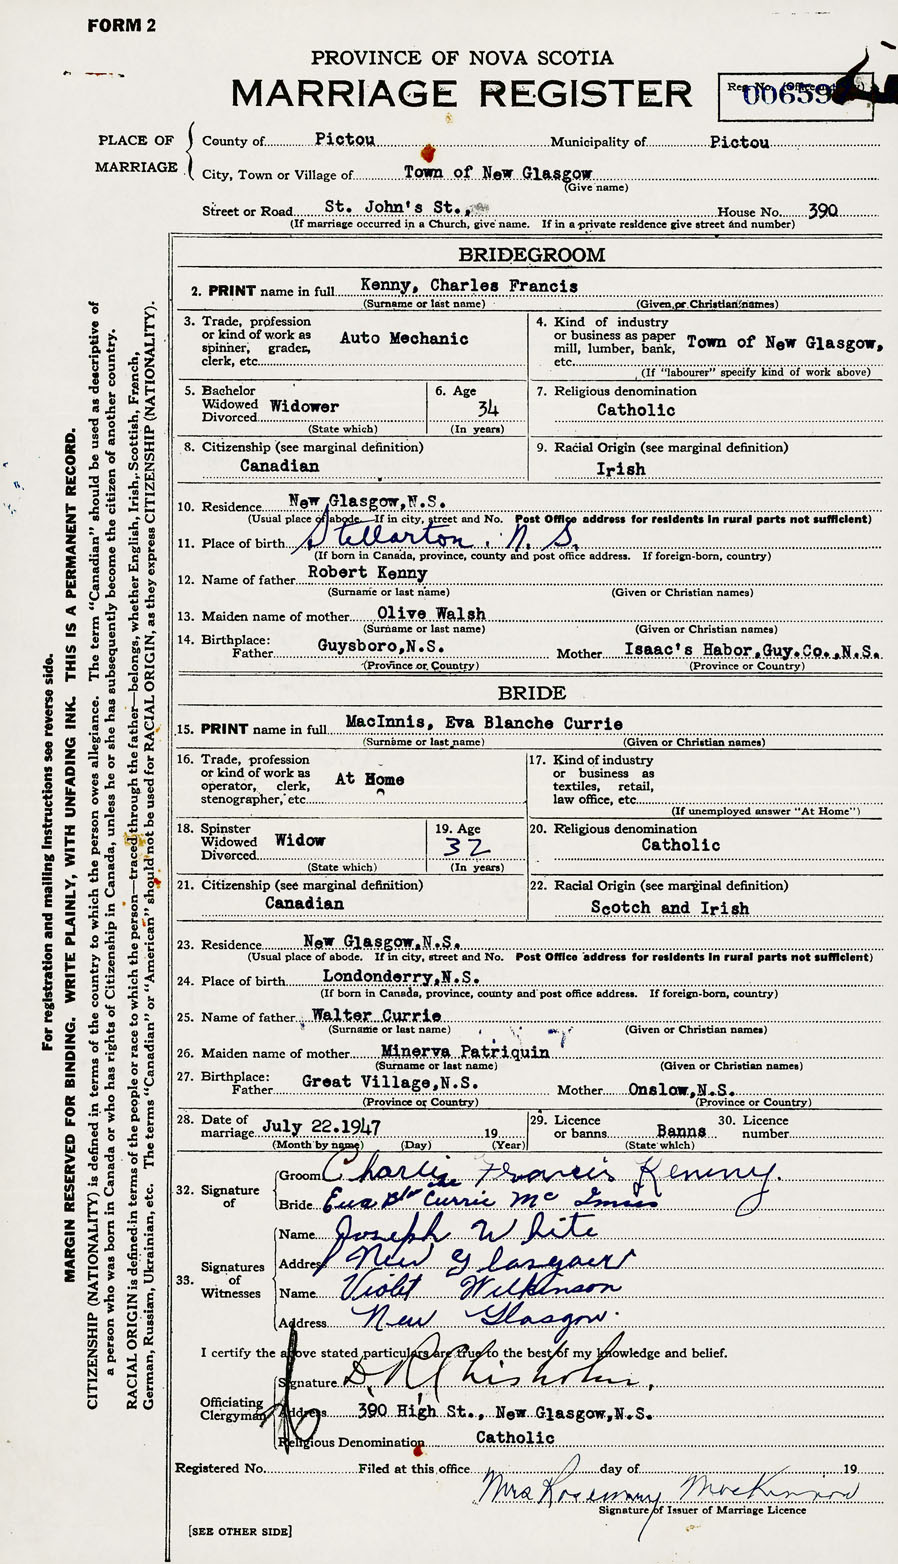 FORM 2
PROVINCE OF NOVA SCOTIA
MARRIAGE REGISTER
Reg. No. (Office use only)
00659
PLACE OF MARRIAGE
County of Pictou Municipality of Pictou
City, Town or Village of Town of New Glasgow
(Give name)
Street or Road St. John's St., House No. 390
(If marriage occurred in a Church, give name. If in a private residence give street and number)
BRIDEGROOM
2. PRINT name in full Kenny, Charles Francis
(Surname or last name) (Given or Christian names)
3. Trade, profession or kind of work as spinner, grader, clerk, etc. Auto Mechanic
4. Kind of industry or business as paper mill, lumber, bank, etc. Town of New Glasgow,
(If "labourer" specify kind of work above)
5. Bachelor Widowed Divorced Widower
(State which)
6. Age 34
(In years)
7. Religious denomination
Catholic
8. Citizenship (see marginal definition)
Canadian
9. Racial Origin (see marginal definition)
Irish
10. Residence New Glasgow,N.S.
(Usual place of abode. If in city, street and No. Post Office address for residents in rural parts not sufficient)
11. Place of birth Stellarton, N.S.
(If born in Canada, province, county and post office address. If foreign-born, country)
12. Name of father Robert Kenny
(Surname or last name) (Given or Christian names)
13. Maiden name of mother Olive Walsh
(Surname or last name) (Given or Christian names)
14. Birthplace: Father Guysboro,N.S. Mother Isaac's Habor,Guy.Co.,N.S.
(Province or Country) (Province or Country)
BRIDE
15. PRINT name in full MacInnis, Eva Blanche Currie
(Surname or last name) (Given or Christian names)
16. Trade, profession or kind of work as operator, clerk, stenographer, etc. At Home
17. Kind of industry or business as textiles, retail, law office, etc.
(If unemployed answer "At Home")
18. Spinster Widowed Divorced Widow
(State which)
19. Age
32
(In years)
20. Religious denomination
Catholic
21. Citizenship (see marginal definition)
Canadian
22. Racial Origin (see marginal definition)
Scotch and Irish
23. Residence New Glasgow,N.S.
(Usual place of abode. If in city, street and No. Post Office address for residents in rural parts not sufficient)
24. Place of birth Londonderry,N.S.
(If born in Canada, province, county and post office address. If foreign-born, country)
25. Name of father Walter Currie
(Surname or last name) (Given or Christian names)
26. Maiden name of mother Minerva Patriquin
(Surname or last name) (Given or Christian names)
27. Birthplace: Father Great Village,N.S. Mother Onslow,N.S.
(Province or Country) (Province or Country)
28. Date of marriage July 22.1947 19
(Month by name) (Day) (Year)
29. Licence or banns Banns
(State which)
30. Licence number
32. Signature of
Groom Charlie Francis Kenny.
Bride Eva Currie McInnis
33. Signatures of Witnesses
Name Joseph White
Address New Glasgow
Name Violet Wilkinson
Address New Glasgow.
I certify the above stated particulars are true to the best of my knowledge and belief.
Officiating Clergyman
Signature D. R. Chisholm.
Address 390 High St., New Glasgow,N.S.
Religious Denomination Catholic
Registered No. Filed at this office day of 19
Mrs Rosemary MacKinnon
Signature of Issuer of Marriage Licence
[SEE OTHER SIDE]
For registration and mailing instructions see reverse side.
MARGIN RESERVED FOR BINDING. WRITE PLAINLY, WITH UNFADING INK. THIS IS A PERMANENT RECORD.
CITIZENSHIP (NATIONALITY) is defined in terms of the country to which the person owes allegiance. The term "Canadian" should be used as descriptive of
a person who was born in Canada or who has rights of Citizenship in Canada, unless he or she has subsequently become the citizen of another country.
RACIAL ORIGIN is defined in terms of the people or race to which the person—traced through the father—belongs, whether English, Irish, Scottish, French,
German, Russian, Ukrainian, etc. The terms "Canadian" or "American" should not be used for RACIAL ORIGIN, as they express CITIZENSHIP (NATIONALITY).